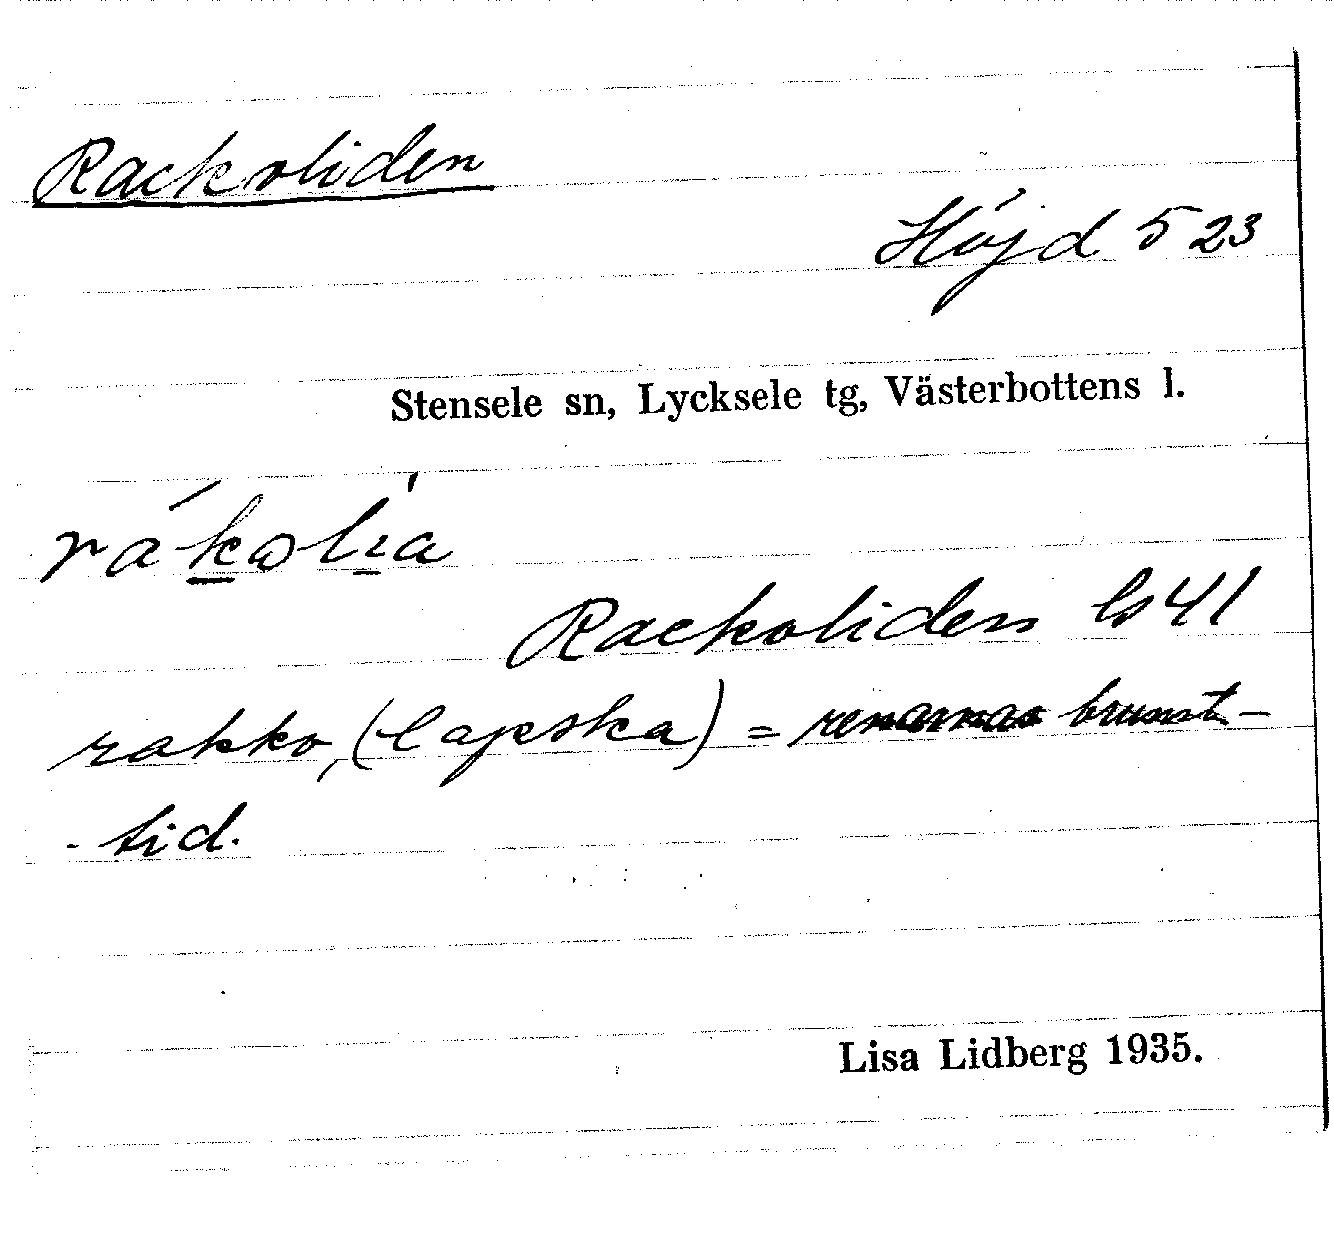 Rackoliden
Höjd 523
Stensele sn, Lycksele tg, Västerbottens l.
rákolìa
Rackoliden bs 41
rakko, (lapska) = renarnas brunst-
- tid.
Lisa Lidberg 1935.